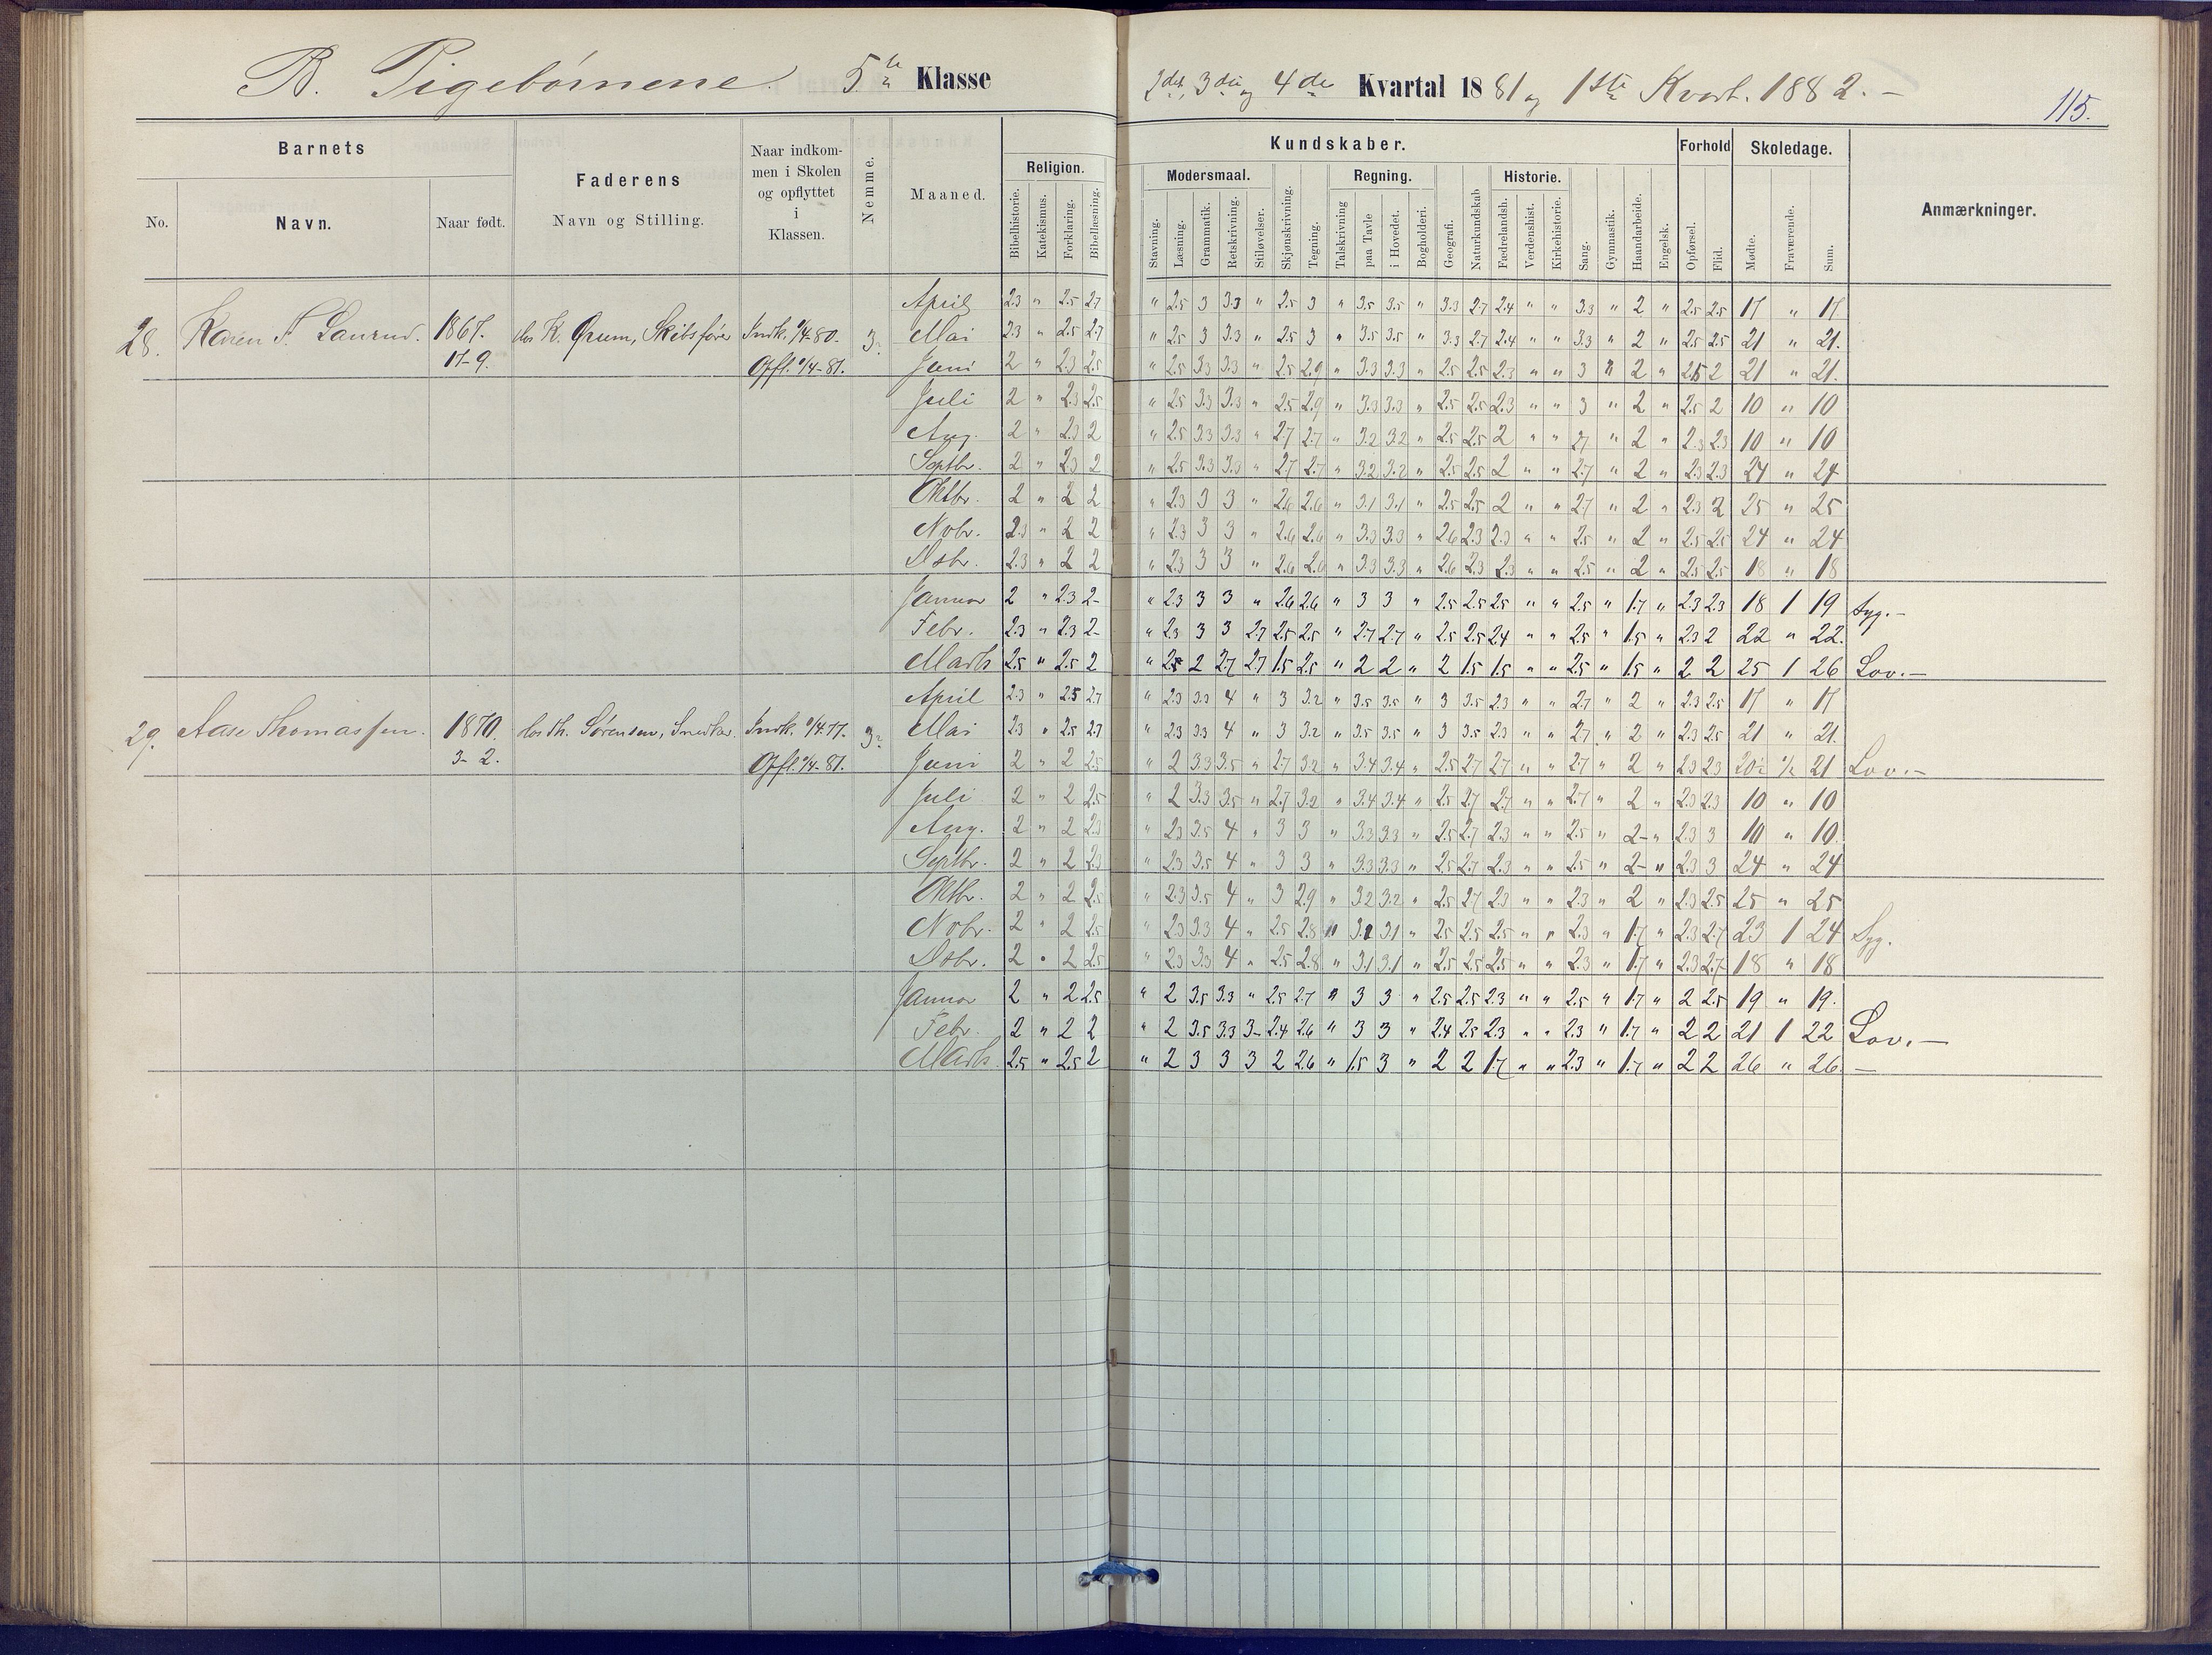 B. Pigebørnene. 5te Klasse
2det, 3die og 4de Kvartal 1881 og 1ste Kvart. 1882. –
115.
Barnets
No. Navn. Naar født.
Faderens
Navn og Stilling.
Naar indkom-
men i Skolen
og opflyttet
i
Klassen.
Nemme.
Maaned.
Religion.
Bibelhistorie. Katekismus. Forklaring. Bibellæsning.
Kundskaber.
Modersmaal.
Stavning. Læsning. Grammatik. Retskrivning. Stiløvelser.
Skjønskrivning. Tegning.
Regning.
Talskrivning paa Tavle i Hovedet. Bogholderi.
Geografi. Naturkundskab
Historie.
Fædrelandsh. Verdenshist. Kirkehistorie.
Sang. Gymnastik. Haandarbeide. Engelsk.
Forhold
Opførsel. Flid.
Skoledage.
Mødte. Fraværende. Sum.
Anmærkninger.
April 2.3 " 2.5 2.7 " 2.5 3 3.3 " 2.5 3 " 3.5 3.5 " 3.3 2.7 2.4 " " 3.3 " 2 " 2.5 2.5 17 " 17.
28. Karen F. Laurud. 1867. hos K. Grum, Skibsfører Indk. 1/4-80. 3. Mai 2.3 " 2.5 2.7 " 2.5 3 3.3 " 2.5 3 " 3.5 3.5 " 3.3 2.7 2.4 " " 3.3 " 2 " 2.5 2.5 21 " 21.
17-9. Opfl. 1/4-81. Juni 2 " 2.3 2.5 " 2.5 3.3 3.3 " 2.5 2.9 " 3.3 3.3 " 2.5 2.5 2.3 " " 3 " 2 " 2.5 2 21 " 21.
Juli 2 " 2.3 2.5 " 2.5 3.3 3.3 " 2.5 2.9 " 3.3 3.3 " 2.5 2.5 2.3 " " 3 " 2 " 2.5 2 10 " 10
Aug. 2 " 2.3 2 " 2.5 3.3 3.3 " 2.7 2.7 " 3.2 3.2 " 2.5 2.5 2 " " 2.7 " 2 " 2.3 2.3 10 " 10
Septbr. 2 " 2.3 2 " 2.5 3.3 3.3 " 2.7 2.7 " 3.2 3.2 " 2.5 2.5 2 " " 2.7 " 2 " 2.3 2.3 24 " 24
Oktbr. 2 " 2 2 " 2.3 3 3 " 2.6 2.6 " 3.1 3.1 " 2.5 2.5 2 " " 2.7 " 2 " 2.3 2 25 " 25
Nobr. 2.3 " 2 2 " 2.3 3 3 " 2.6 2.6 " 3.3 3.3 " 2.6 2.3 2.3 " " 2.5 " 2 " 2.5 2.5 24 " 24
Dsbr. 2.3 " 2 2 " 2.3 3 3 " 2.6 2.6 " 3.3 3.3 " 2.6 2.3 2.3 " " 2.5 " 2 " 2.5 2.5 18 " 18
Januar 2 " 2.3 2- " 2.3 3 3 " 2.6 2.6 " 3 3 " 2.5 2.5 2.5 " " 2.5 " 1.7 " 2.3 2.3 18 1 19 Syg. –
Febr. 2.3 " 2.3 2- " 2.3 3 3 2.7 2.5 2.5 " 2.7 2.7 " 2.5 2.5 2.4 " " 2.5 " 1.5 " 2.3 2 22 " 22.
Marts 2.5 " 2.5 2 " 2.5 2 2.7 2.7 1.5 2.5 " 2 2 " 2 1.5 1.5 " " 2.5 " 1.5 " 2 2 25 1 26 Lov. –
April 2.3 " 2.5 2.7 " 2.3 3.3 4 " 3 3.2 " 3.5 3.5 " 3 3.5 2.3 " " 2.7 " 2 " 2.3 2.5 17 " 17
29. Aase Thomassen. 1870. hos Th. Sørensen, Snedker. Indk. 1/4.77. 3. Mai 2.3 " 2.5 2.7 " 2.3 3.3 4 " 3 3.2 " 3.5 3.5 " 3 3.5 2.3 " " 2.7 " 2 " 2.3 2.5 21 " 21.
3-2. Opfl. 1/4-81. Juni 2 " 2 2.5 " 2 3.3 3.5 " 2.7 3.2 " 3.4 3.4 " 2.5 2.7 2.7 " " 2.7 " 2 " 2.3 2.3 20½ ½ 21 Lov. –
Juli 2 " 2 2.5 " 2 3.3 3.5 " 2.7 3.2 " 3.4 3.4 " 2.5 2.7 2.7 " " 2.7 " 2 " 2.3 2.3 10 " 10
Aug. 2 " 2 2.3 " 2.3 3.5 4 " 3 3 " 3.3 3.3 " 2.5 2.7 2.3 " " 2.5 " 2- " 2.3 3 10 " 10.
Septbr. 2 " 2 2.3 " 2.3 3.5 4 " 3 3 " 3.3 3.3 " 2.5 2.7 2.3 " " 2.5 " 2- " 2.3 3 24 " 24
Oktbr. 2 " 2 2.5 " 2.3 3.5 4 " 3 2.9 " 3.2 3.2 " 2.5 2.7 2.3 " " 2.3 " 2 " 2.3 2.5 25 " 25
Nobr. 2 " 2 2.5 " 2.3 3.3 4 " 2.5 2.8 " 3.1 3.1 " 2.5 2.5 2.5 " " 2.3 " 1.7 " 2.3 2.7 23 1 24 Syg.
Dsbr. 2 " 2 2.5 " 2.3 3.3 4 " 2.5 2.8 " 3.1 3.1 " 2.5 2.5 2.5 " " 2.3 " 1.7 " 2.3 2.7 18 " 18
Januar 2 " 2 2.5 " 2 3.5 3.3 " 2.5 2.7 " 3 3 " 2.5 2.5 2.3 " " 2.5 " 1.7 " 2 2.5 19 " 19.
Febr. 2 " 2 2 " 2 3.5 3.3 3- 2.4 2.6 " 3 3 " 2.4 2.5 2.3 " " 2.3 " 1.7 " 2 2 21 1 22 Lov. –
Marts 2.5 " 2.5 2 " 2 3 3 3 2 2.6 " 1.5 3 " 2 2 1.7 " " 2.3 " 1.7 " 2 2 26 " 26. –